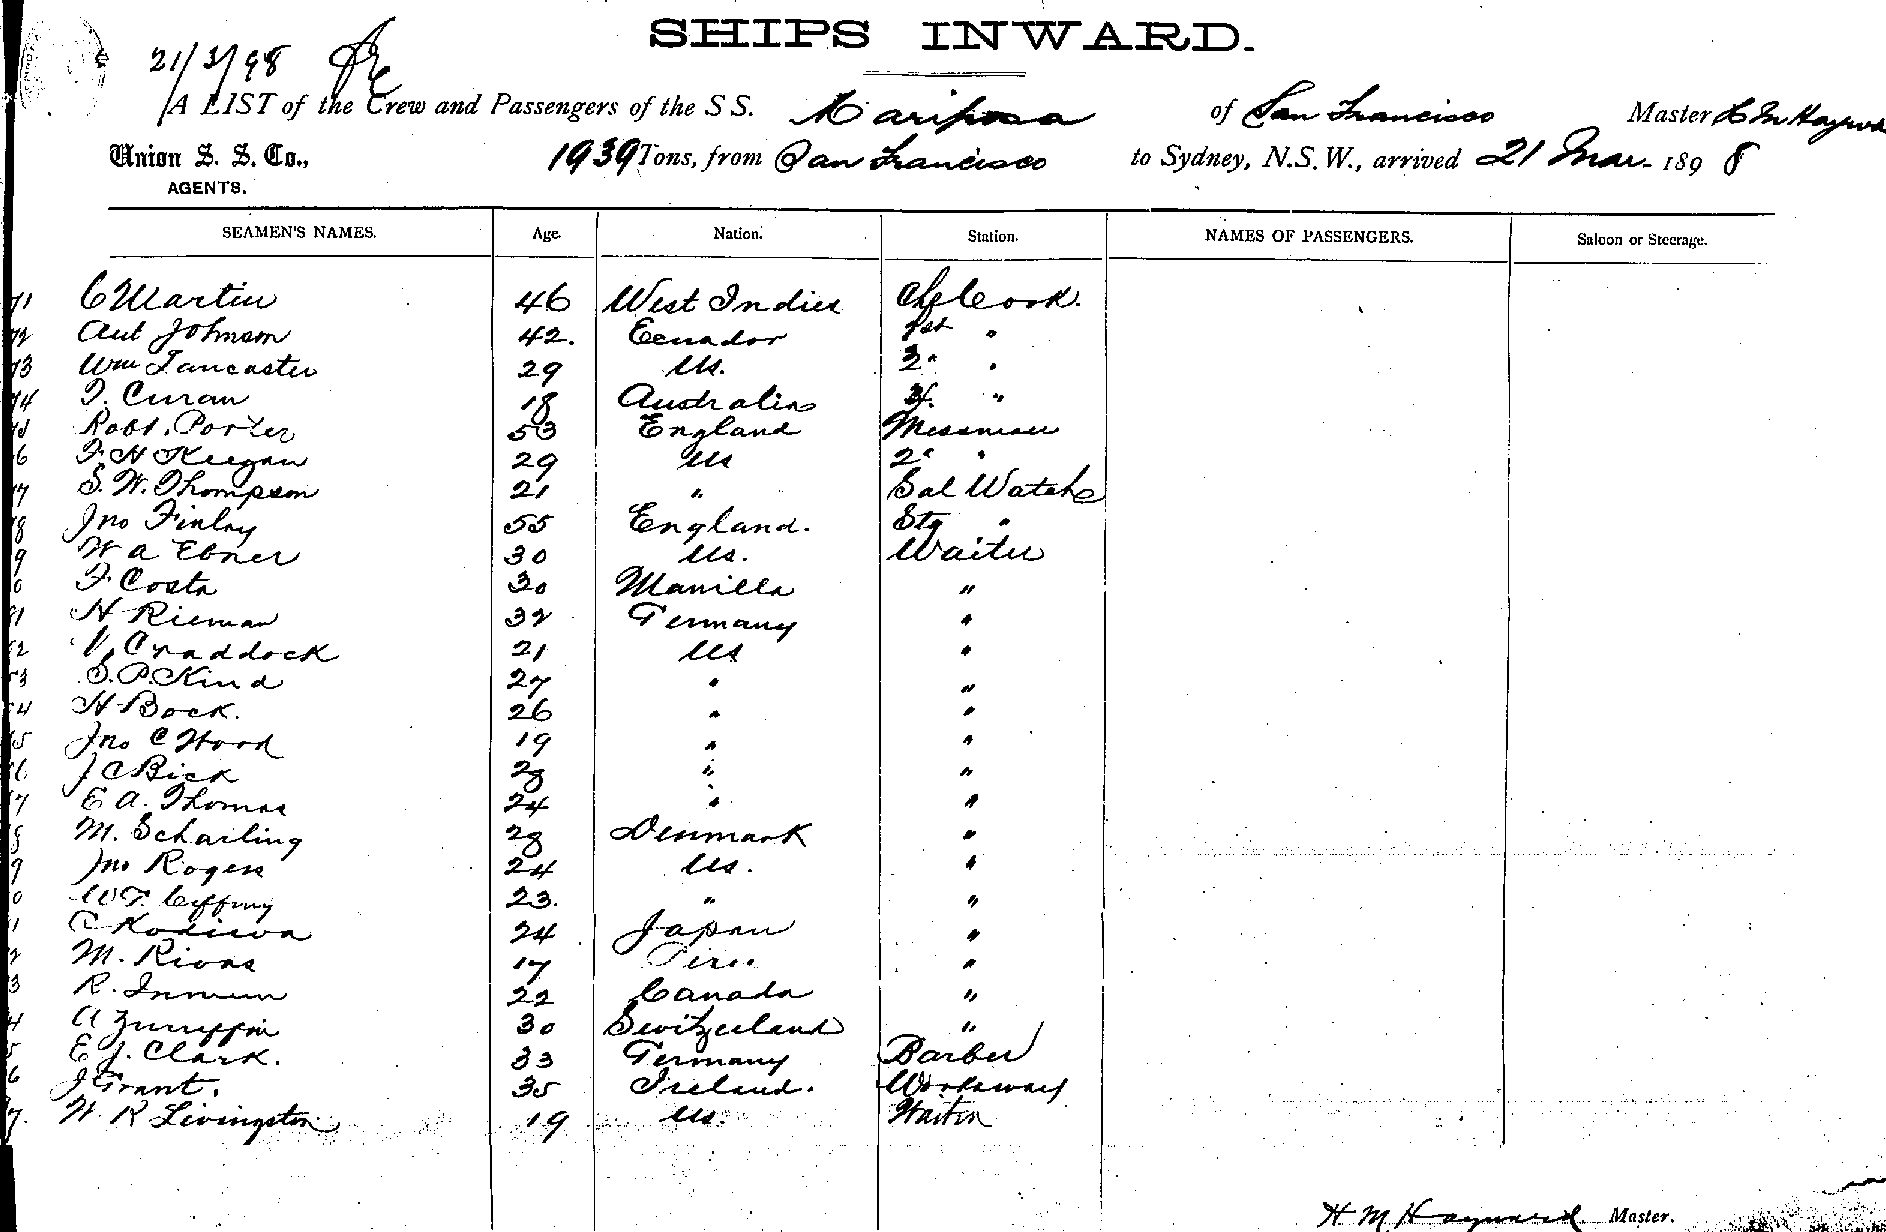 SHIPS INWARD.
21/3/98
A LIST of the Crew and Passengers of the S S. Mariposa of San Francisco Master H M Hayward
Union S. S. Co., 1939 Tons, from San Francisco to Sydney, N.S.W., arrived 21 Mar. 1898
AGENTS.
SEAMEN'S NAMES. Age. Nation. Station. NAMES OF PASSENGERS. Saloon or Steerage.
71 C Martin 46 West Indies Ch Cook.
72 Ant Johnson 42. Ecuador 1st "
73 Wm Lancaster 29 Us. 2" "
74 T. Curan 18 Australia "
Robt. Porter 53 England Messman
6 F H Keegan 29 Us 2" "
77 S. W. Thompson 21 " Sal Watch
78 Jno Finlay 55 England. Stg "
9 W A Ebner 30 Us. Waiter
0 F Costa 30 Manilla "
81 H Rieman 32 Germany "
2 V. Craddock 21 Us "
83 S. P. Kind 27 " "
84 H Bock. 26 " "
85 Jno C Wood 19 " "
86 J C Bick 28 " "
87 E A. Thomas 24 " "
8 M. Scharling 28 Denmark "
9 Jno Rogers 24 Us. "
0 W T. 23. " "
1 C 24 Japan "
2 M. Rivas 17 Peru "
3 R. Inman 22 Canada "
4 A 30 Switzerland "
5 E J. Clark. 33 Germany Barber
6 J Grant. 35 Ireland. Workaway
7. W. R Livingston 19 Us. Waiter
H M Hayward Master.